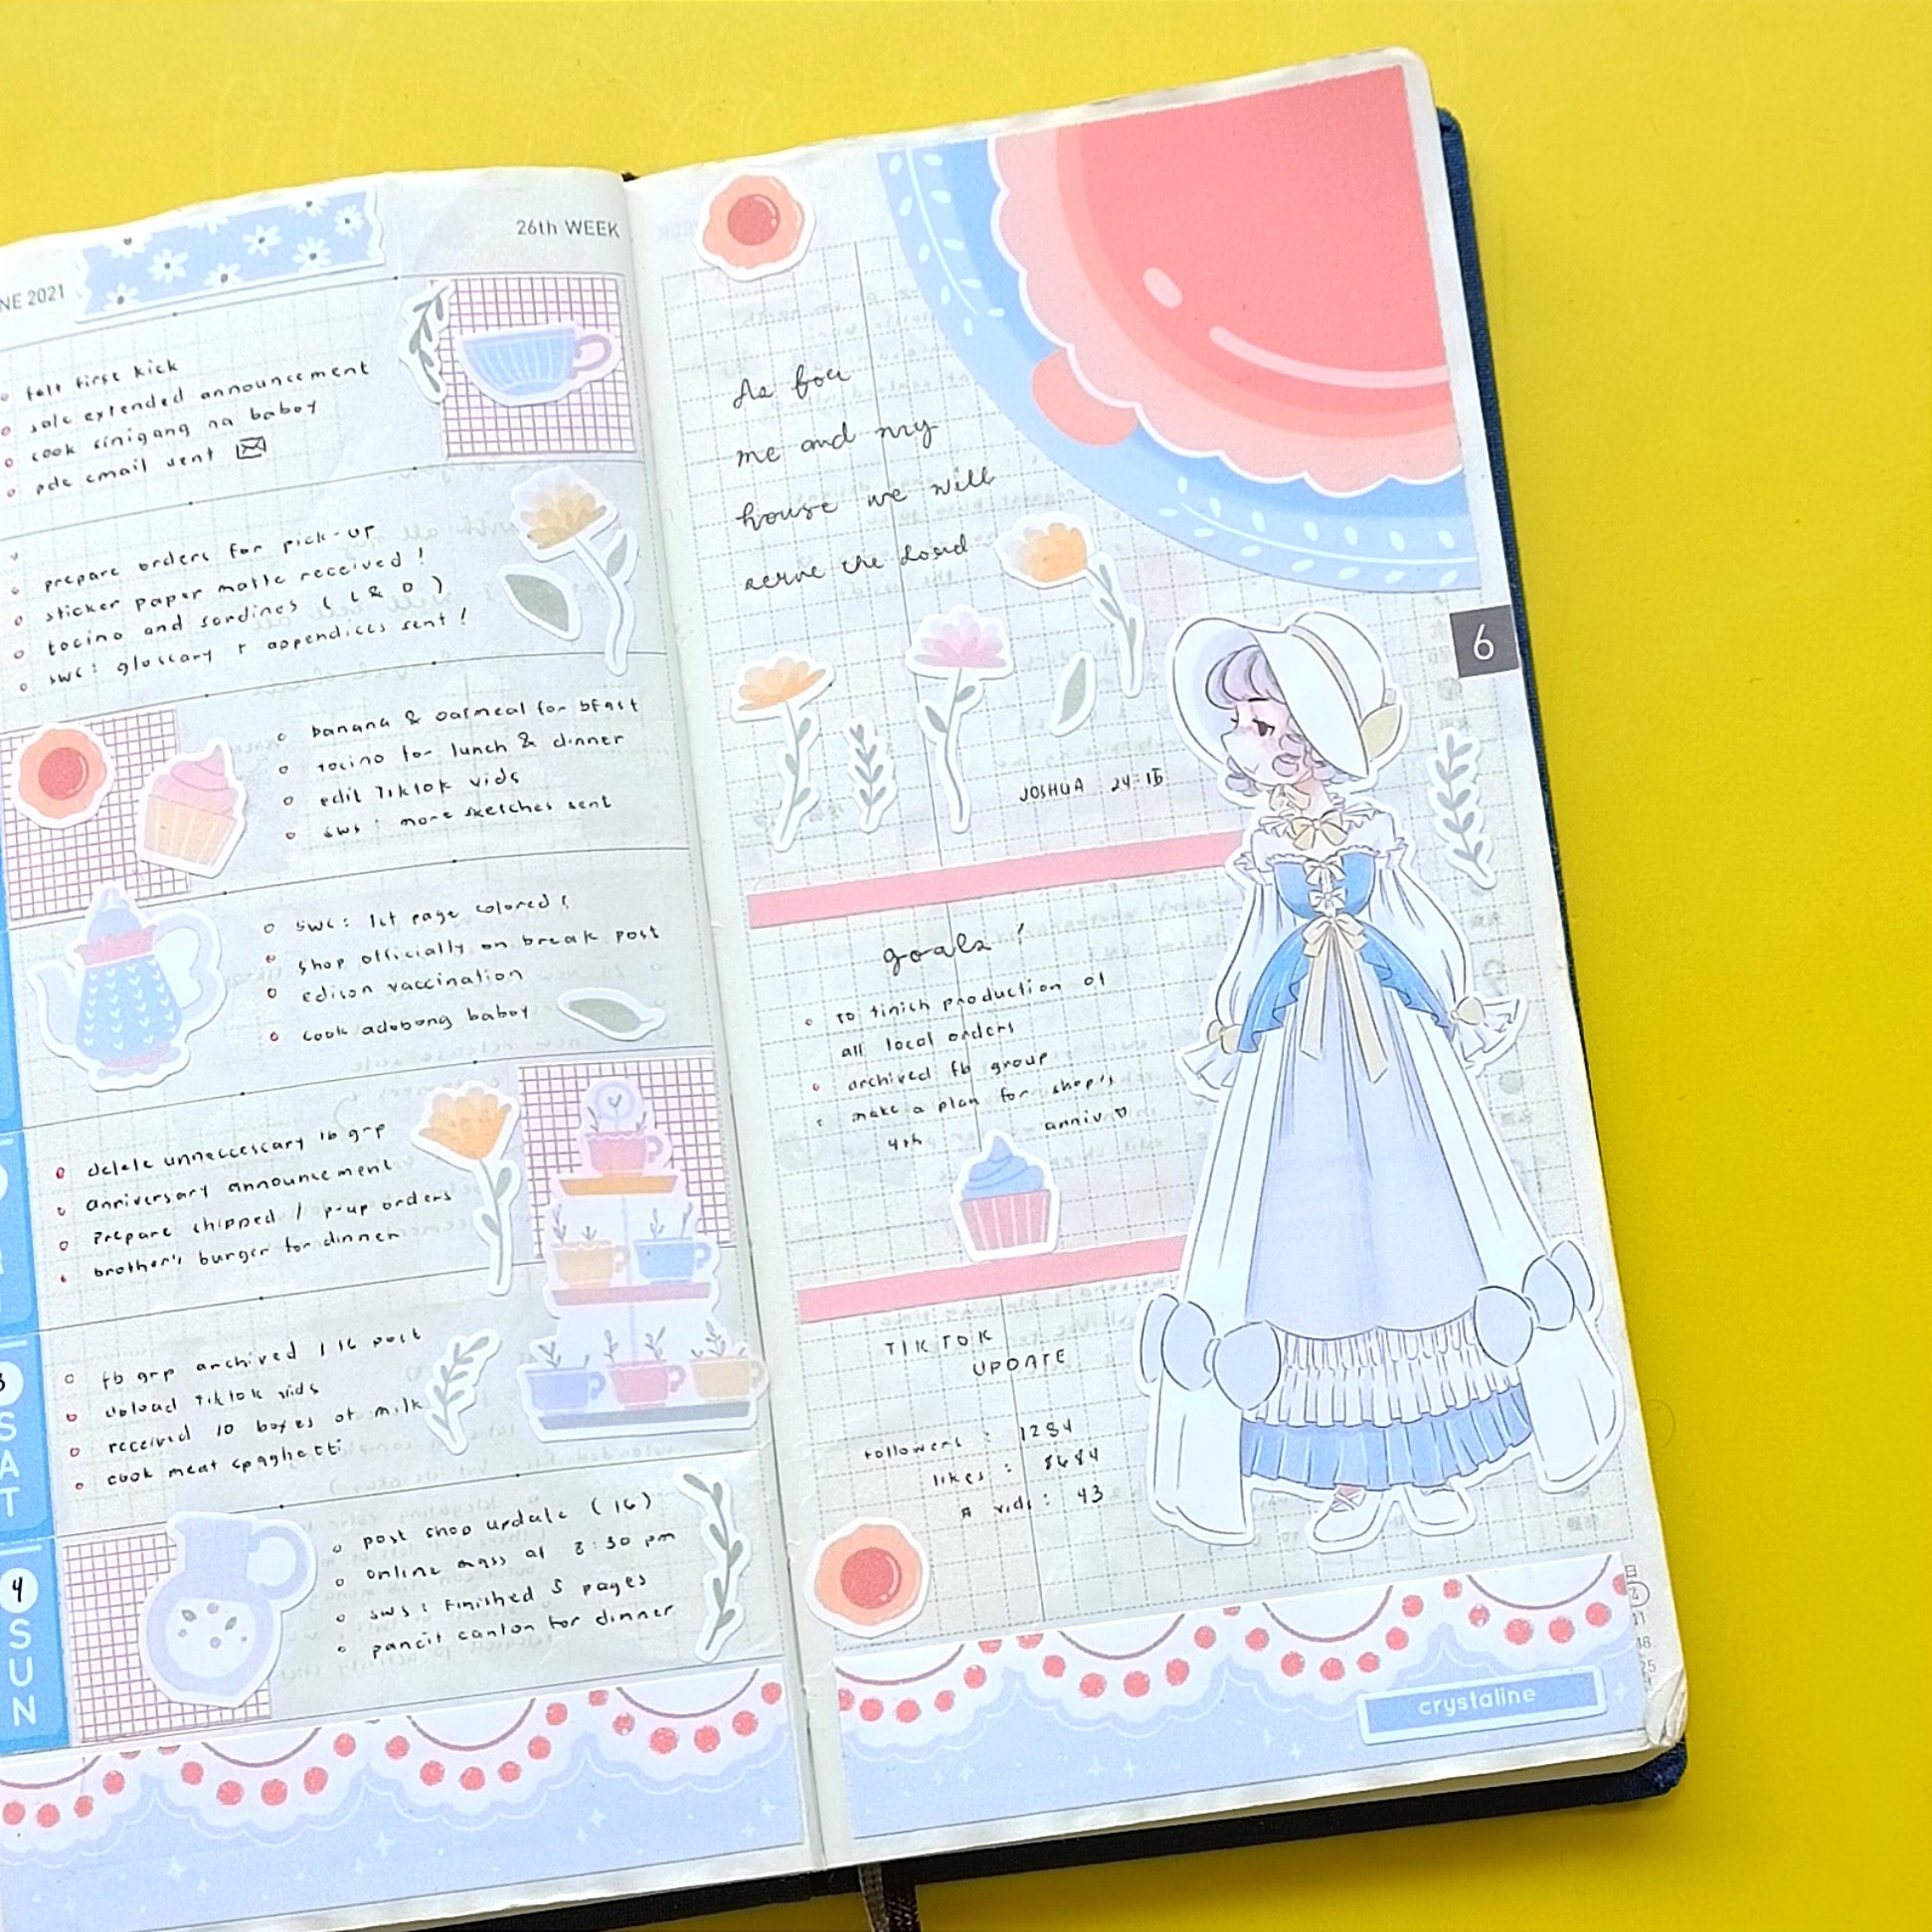 NE 2021
26th WEEK
felt first kick
sale extended announcement
cook sinigang na baboy
pdc email sent
prepare orders for pick-up
sticker paper matte received!
tocino and sardines (L & D)
swc: glossary + appendices sent!
banana & oatmeal for bfast
tocino for lunch & dinner
edit Tiktok vids
sws: more sketches sent
swc: 1st page colored!
shop officially on break post
edison vaccination
cook adobong baboy
delete unneccessary fb grp
anniversary announcement
prepare shipped / p-up orders
brother's burger for dinner
3
SAT
fb grp archived / IG post
upload Tiktok vids
received 10 boxes of milk
cook meat spaghetti
4
SUN
post shop update (IG)
online mass at 8:30 pm
sws: finished 5 pages
pancit canton for dinner
As for
me and my
house we will
serve the Lord
JOSHUA 24:15
6
goals!
to finish production of
all local orders
archived fb group
make a plan for shop's
4th anniv
TIKTOK
UPDATE
followers: 1284
likes: 8684
# vids: 43
crystaline
日
4
11
18
25